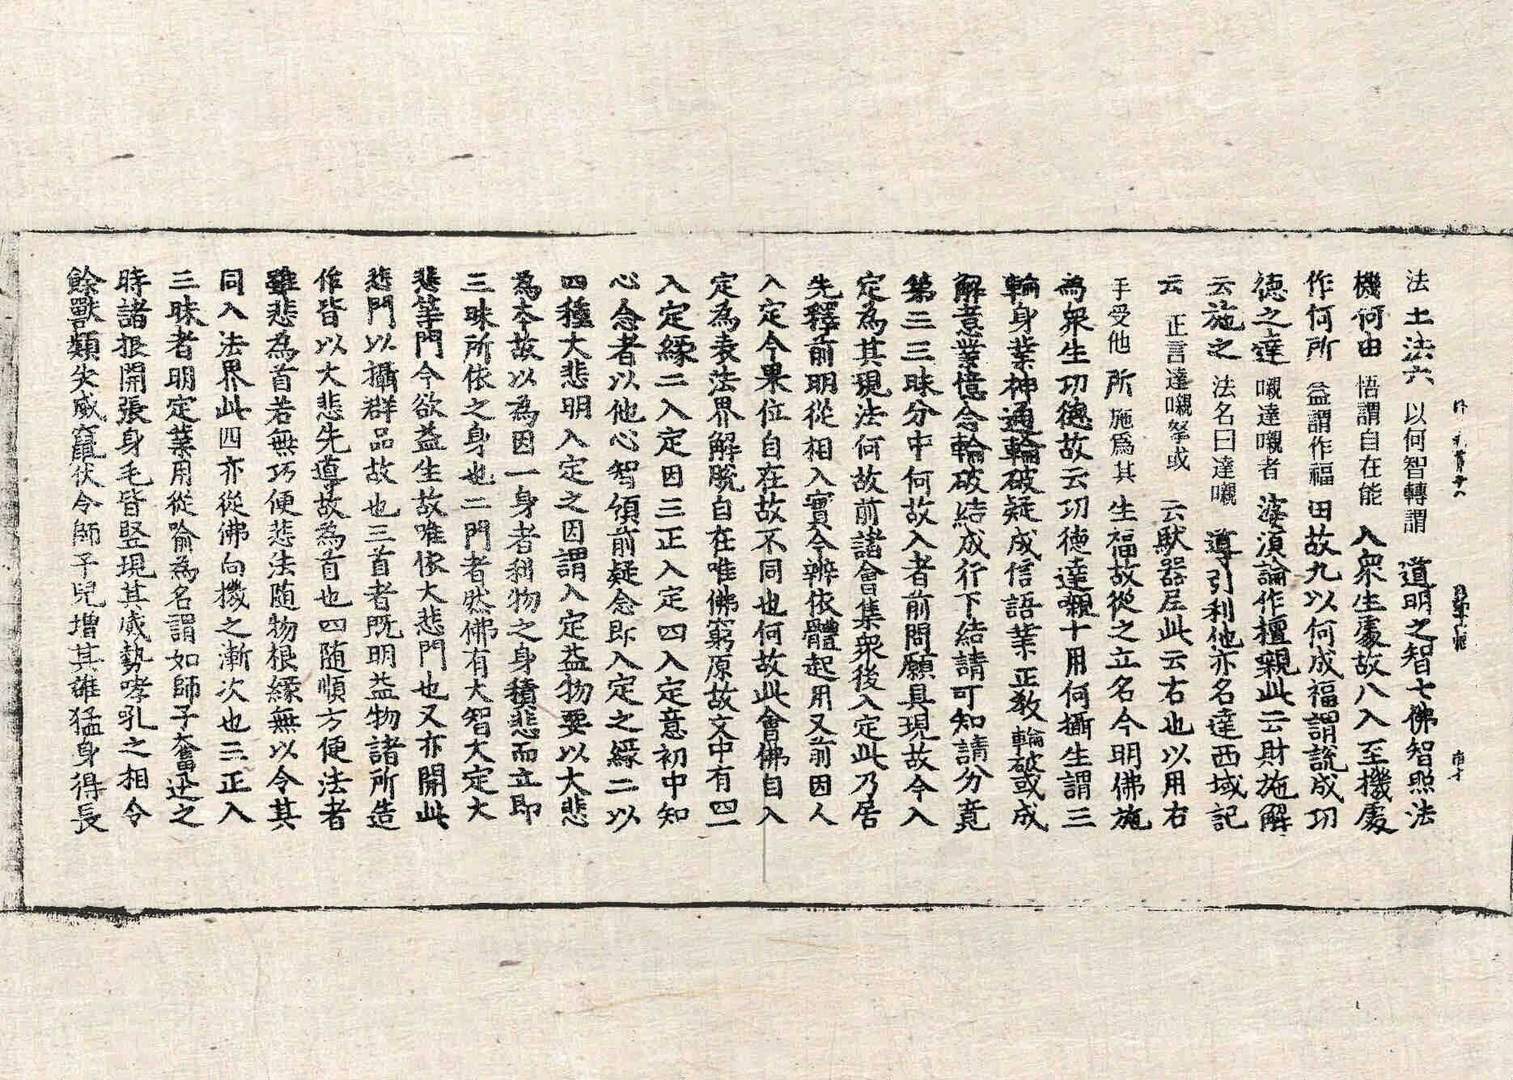 法土法六以何智轉謂道明之智七佛智照法
機何由悟謂自在能入衆生處故八入至機處
作何所益謂作福田故九以何成福謂説成功
德之達嚫達嚫者婆須論作檀嚫此云財施解
云施之法名曰達嚫導引利他亦名達西域記
云正言達嚫拏或云馱器尼此云右也以用右
手受他所施爲其生福故從之立名今明佛施
為衆生功德故云功德達嚫十用何攝生謂三
輪身業神通輪破疑成信語業正教輪破或成
解意業憶念輪破結成行下結請可知請分竟
第三三昧分中何故入者前問願具現故今入
定為其現法何故前諸會集衆後入定此乃居
先釋前明從相入實今辨依體起用又前因人
入定今果位自在故不同也何故此會佛自入
定為表法界解脫自在唯佛窮原故文中有四一
入定緣二入定因三正入定四入定意初中知
心念者以他心智領前疑念即入定之緣二以
四種大悲明入定之因謂入定益物要以大悲
為本故以為因一身者利物之身積悲而立即
三昧所依之身也二門者然佛有大智大定大
悲等門今欲益生故唯依大悲門也又亦開此
悲門以攝群品故也三首者既明益物諸所造
作皆以大悲先導故為首也四随順方便法者
雖悲為首若無巧便悲法随物根緣無以令其
同入法界此四亦從佛向機之漸次也三正入
三昧者明定業用從喻為名謂如師子奮迅之
時諸根開張身毛皆竪現其威勢哮吼之相令
餘獸類失威竄伏令師子兒增其雄猛身得長